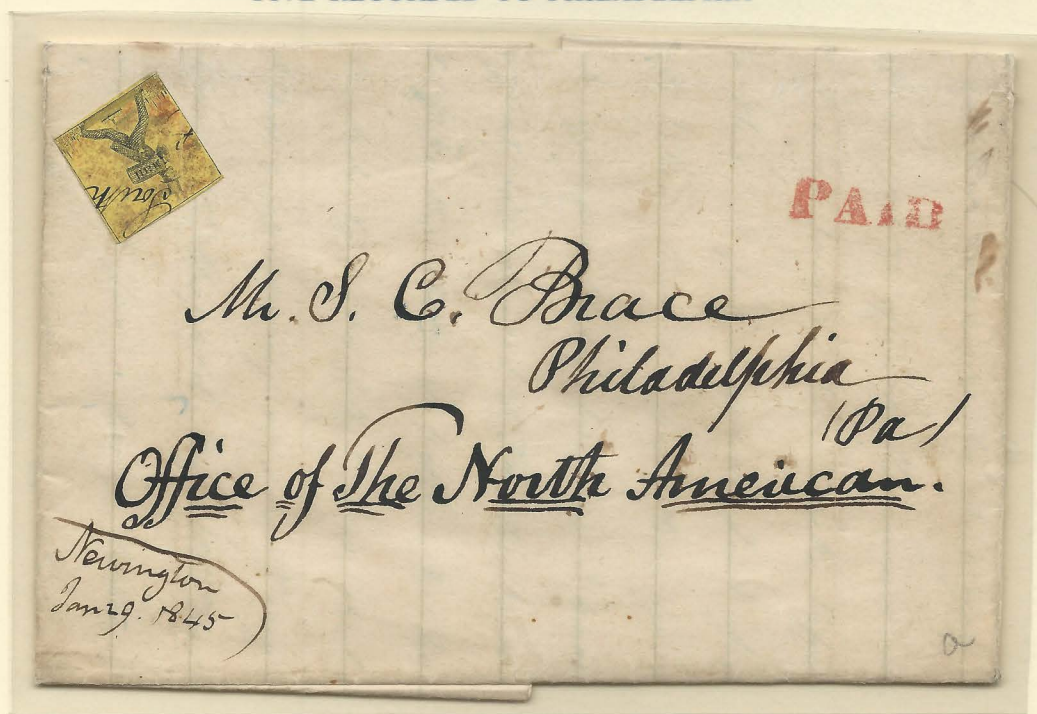 PAID
Mr. S. C. Brace
Philadelphia
(Pa)
Office of The North American.
Newington
Jan 29. 1845